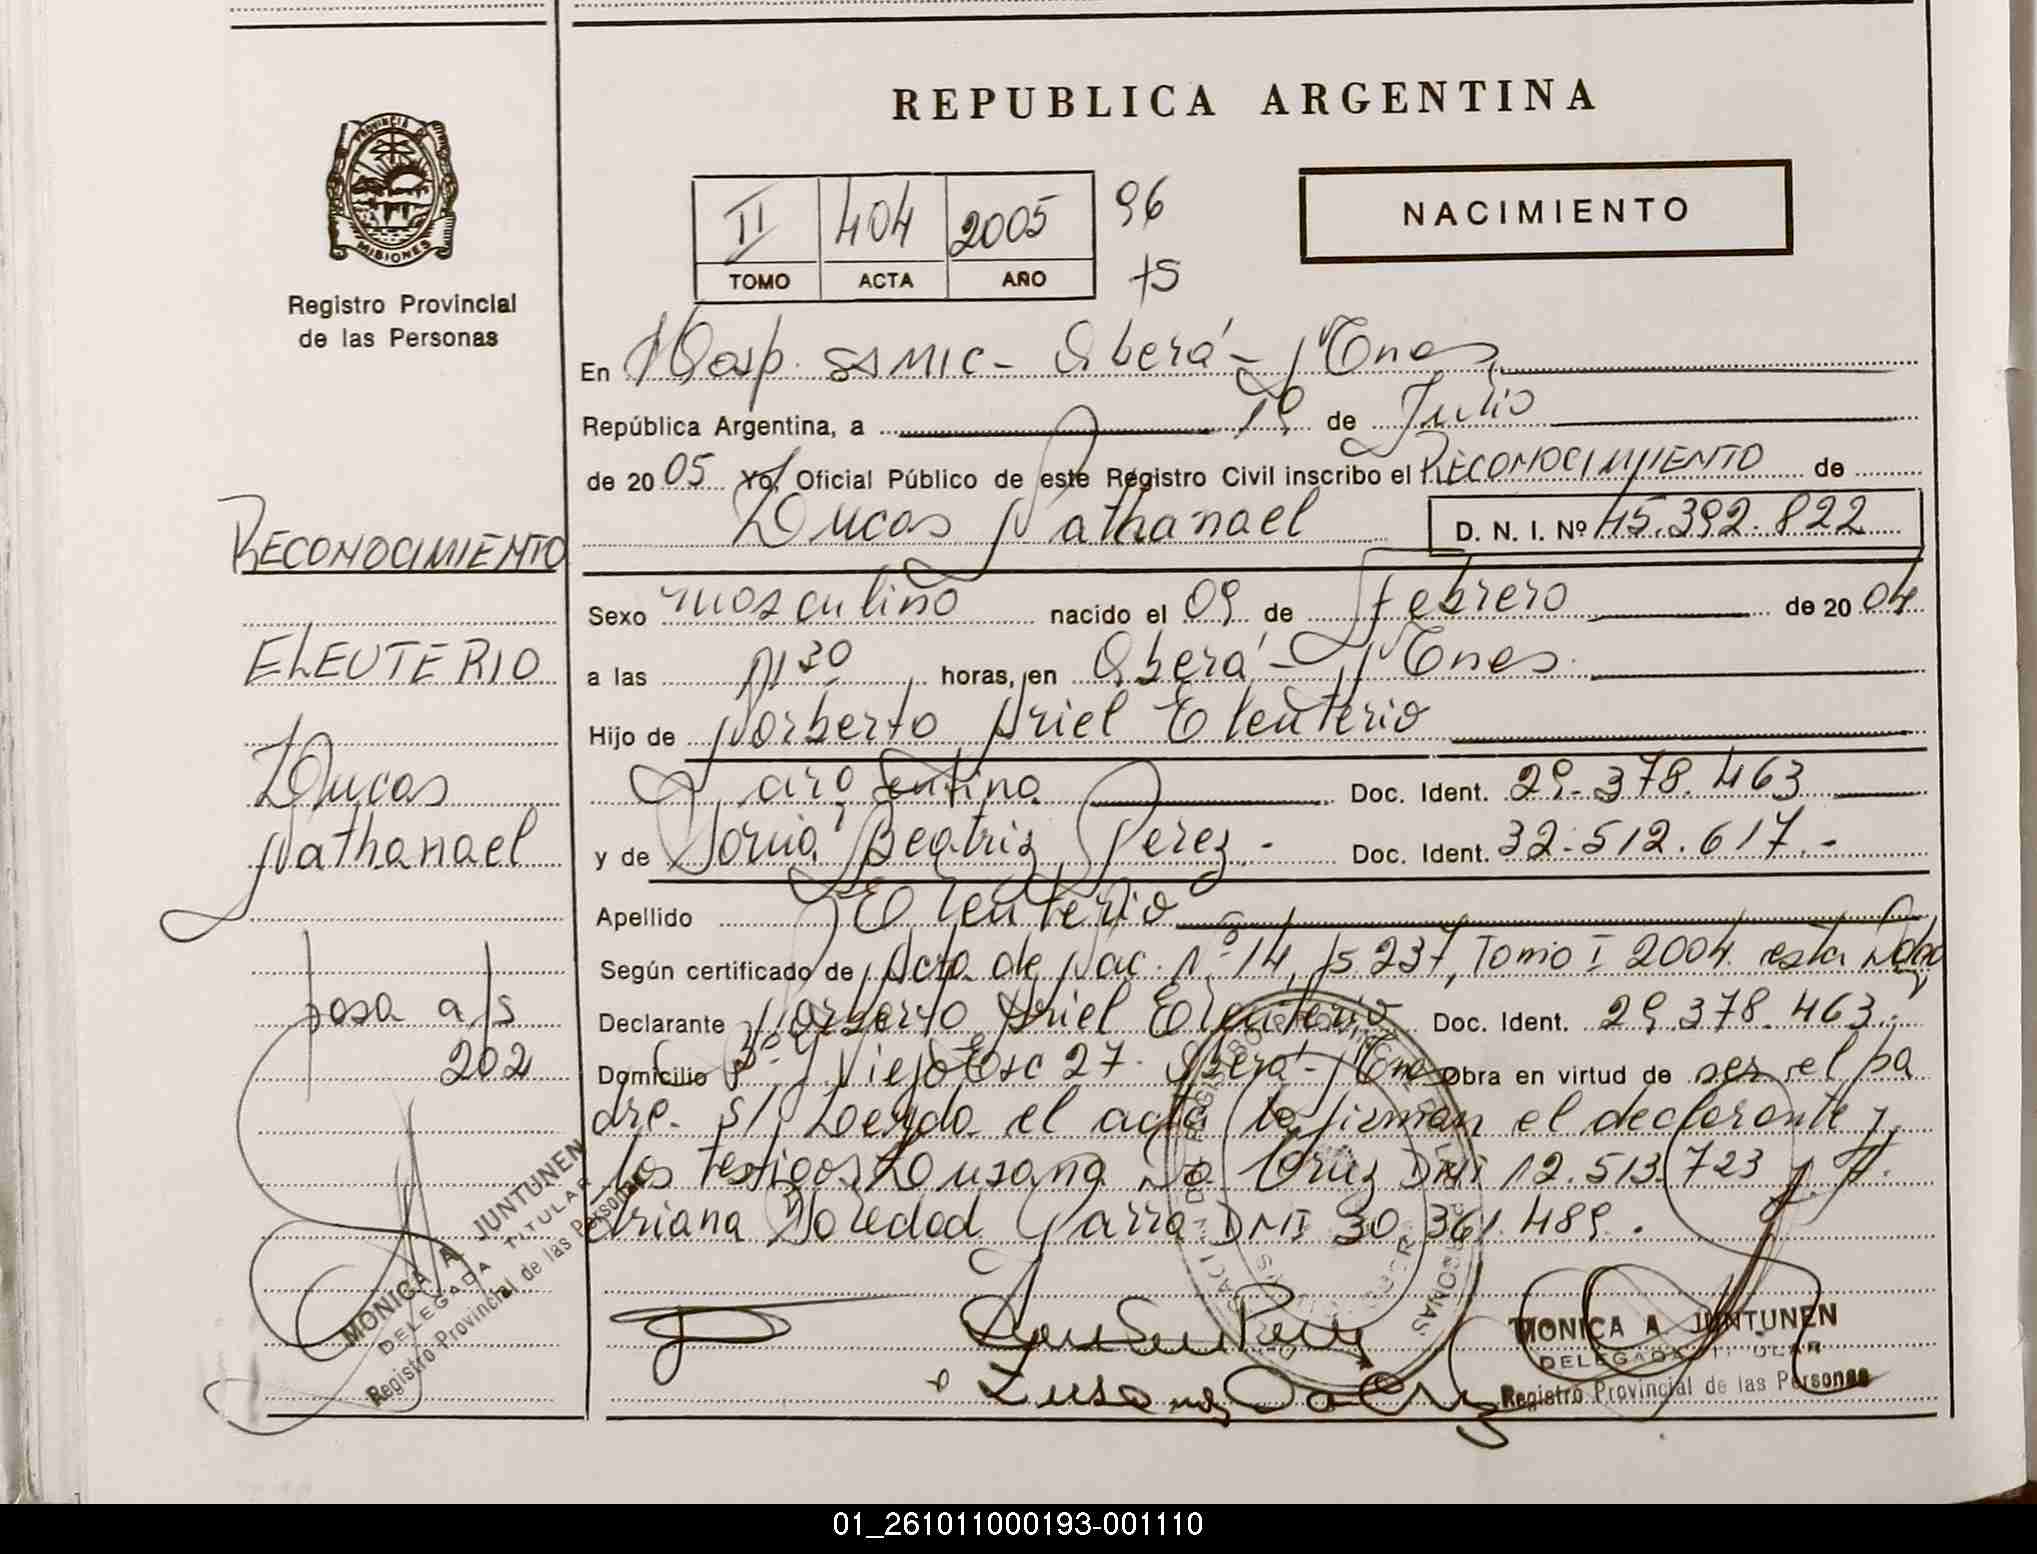 REPUBLICA ARGENTINA
PROVINCIA DE
MISIONES
Registro Provincial
de las Personas
II 404 2005 96
TOMO ACTA AÑO
NACIMIENTO
En Hosp. SAMIC - Oberá - Mnes
República Argentina, a 19 de Julio
de 2005 Yo, Oficial Público de este Registro Civil inscribo el RECONOCIMIENTO de
Lucas Nathanael D. N. I. Nº 45.392.822
Sexo masculino nacido el 09 de Febrero de 2004
a las 11 30 horas, en Oberá - Mnes.
Hijo de Norberto Ariel Eleuterio
argentino Doc. Ident. 29.378.463
y de Sonia Beatriz Perez.- Doc. Ident. 32.512.617.-
Apellido Eleuterio
Según certificado de Acta de Nac. Nº 14, fs 237, Tomo I 2004 esta
Declarante Norberto Ariel Eleuterio Doc. Ident. 29.378.463.
Domicilio Bº Viejo Esc 27. Oberá - Mnes Obra en virtud de ser el pa
dre. S/ Leyda el acta la firman el declarante y
los testigos Lusana Da Cruz DNI 12.513.723 y
Adriana Soledad Parra DNI 30.361.489.
RECONOCIMIENTO
ELEUTERIO
Lucas
Nathanael
pasa a fs
202
MONICA A. JUNTUNEN
DELEGADA TITULAR
Registro Provincial de las Personas
Lusana Da Cruz
MONICA A. JUNTUNEN
DELEGADA TITULAR
Registro Provincial de las Personas
01_261011000193-001110